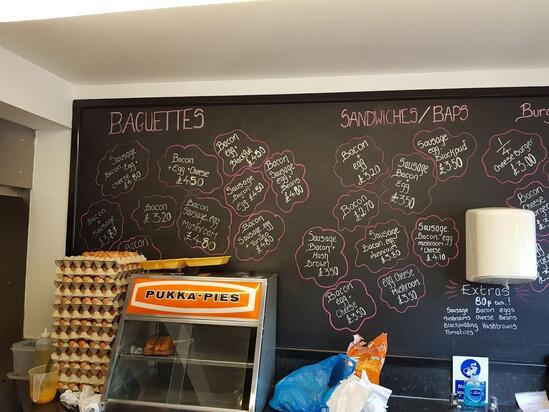 BAGUETTES
Sausage
Bacon Egg
cheese
Bacon
+ Egg + Cheese
£4.50
Bacon
egg
Blackpud
£4.50
Sausage
Bacon
egg
£4.50
Sausage
Bacon
egg
£4.50
Sausage
£3.20
Bacon
£3.20
Bacon
Bacon
Sausage, egg
Mushroom
£4.80
Bacon
egg
Tomato
£4.50
SANDWICHES/BAPS
Bacon
+ egg
£3.20
Bacon
£2.70
Sausage
Bacon
Egg
£3.70
Sausage
egg
Blackpud
£3.50
Sausage
Bacon +
Hash
Brown
£3.50
Bacon
Sausage
egg
£3.50
Sausage
Bacon egg
mushroom +
cheese
£4.10
Bacon
egg
Cheese
£3.50
Egg Cheese
Mushroom
£3.50
Burg
1/4
Cheese Burger
£3.50
Burger
Bacon
Cheese
Extras
80p each!
Sausage Bacon eggs
Mushrooms Cheese Beans
Blackpudding Hashbrowns
Tomatoes
PUKKA-PIES